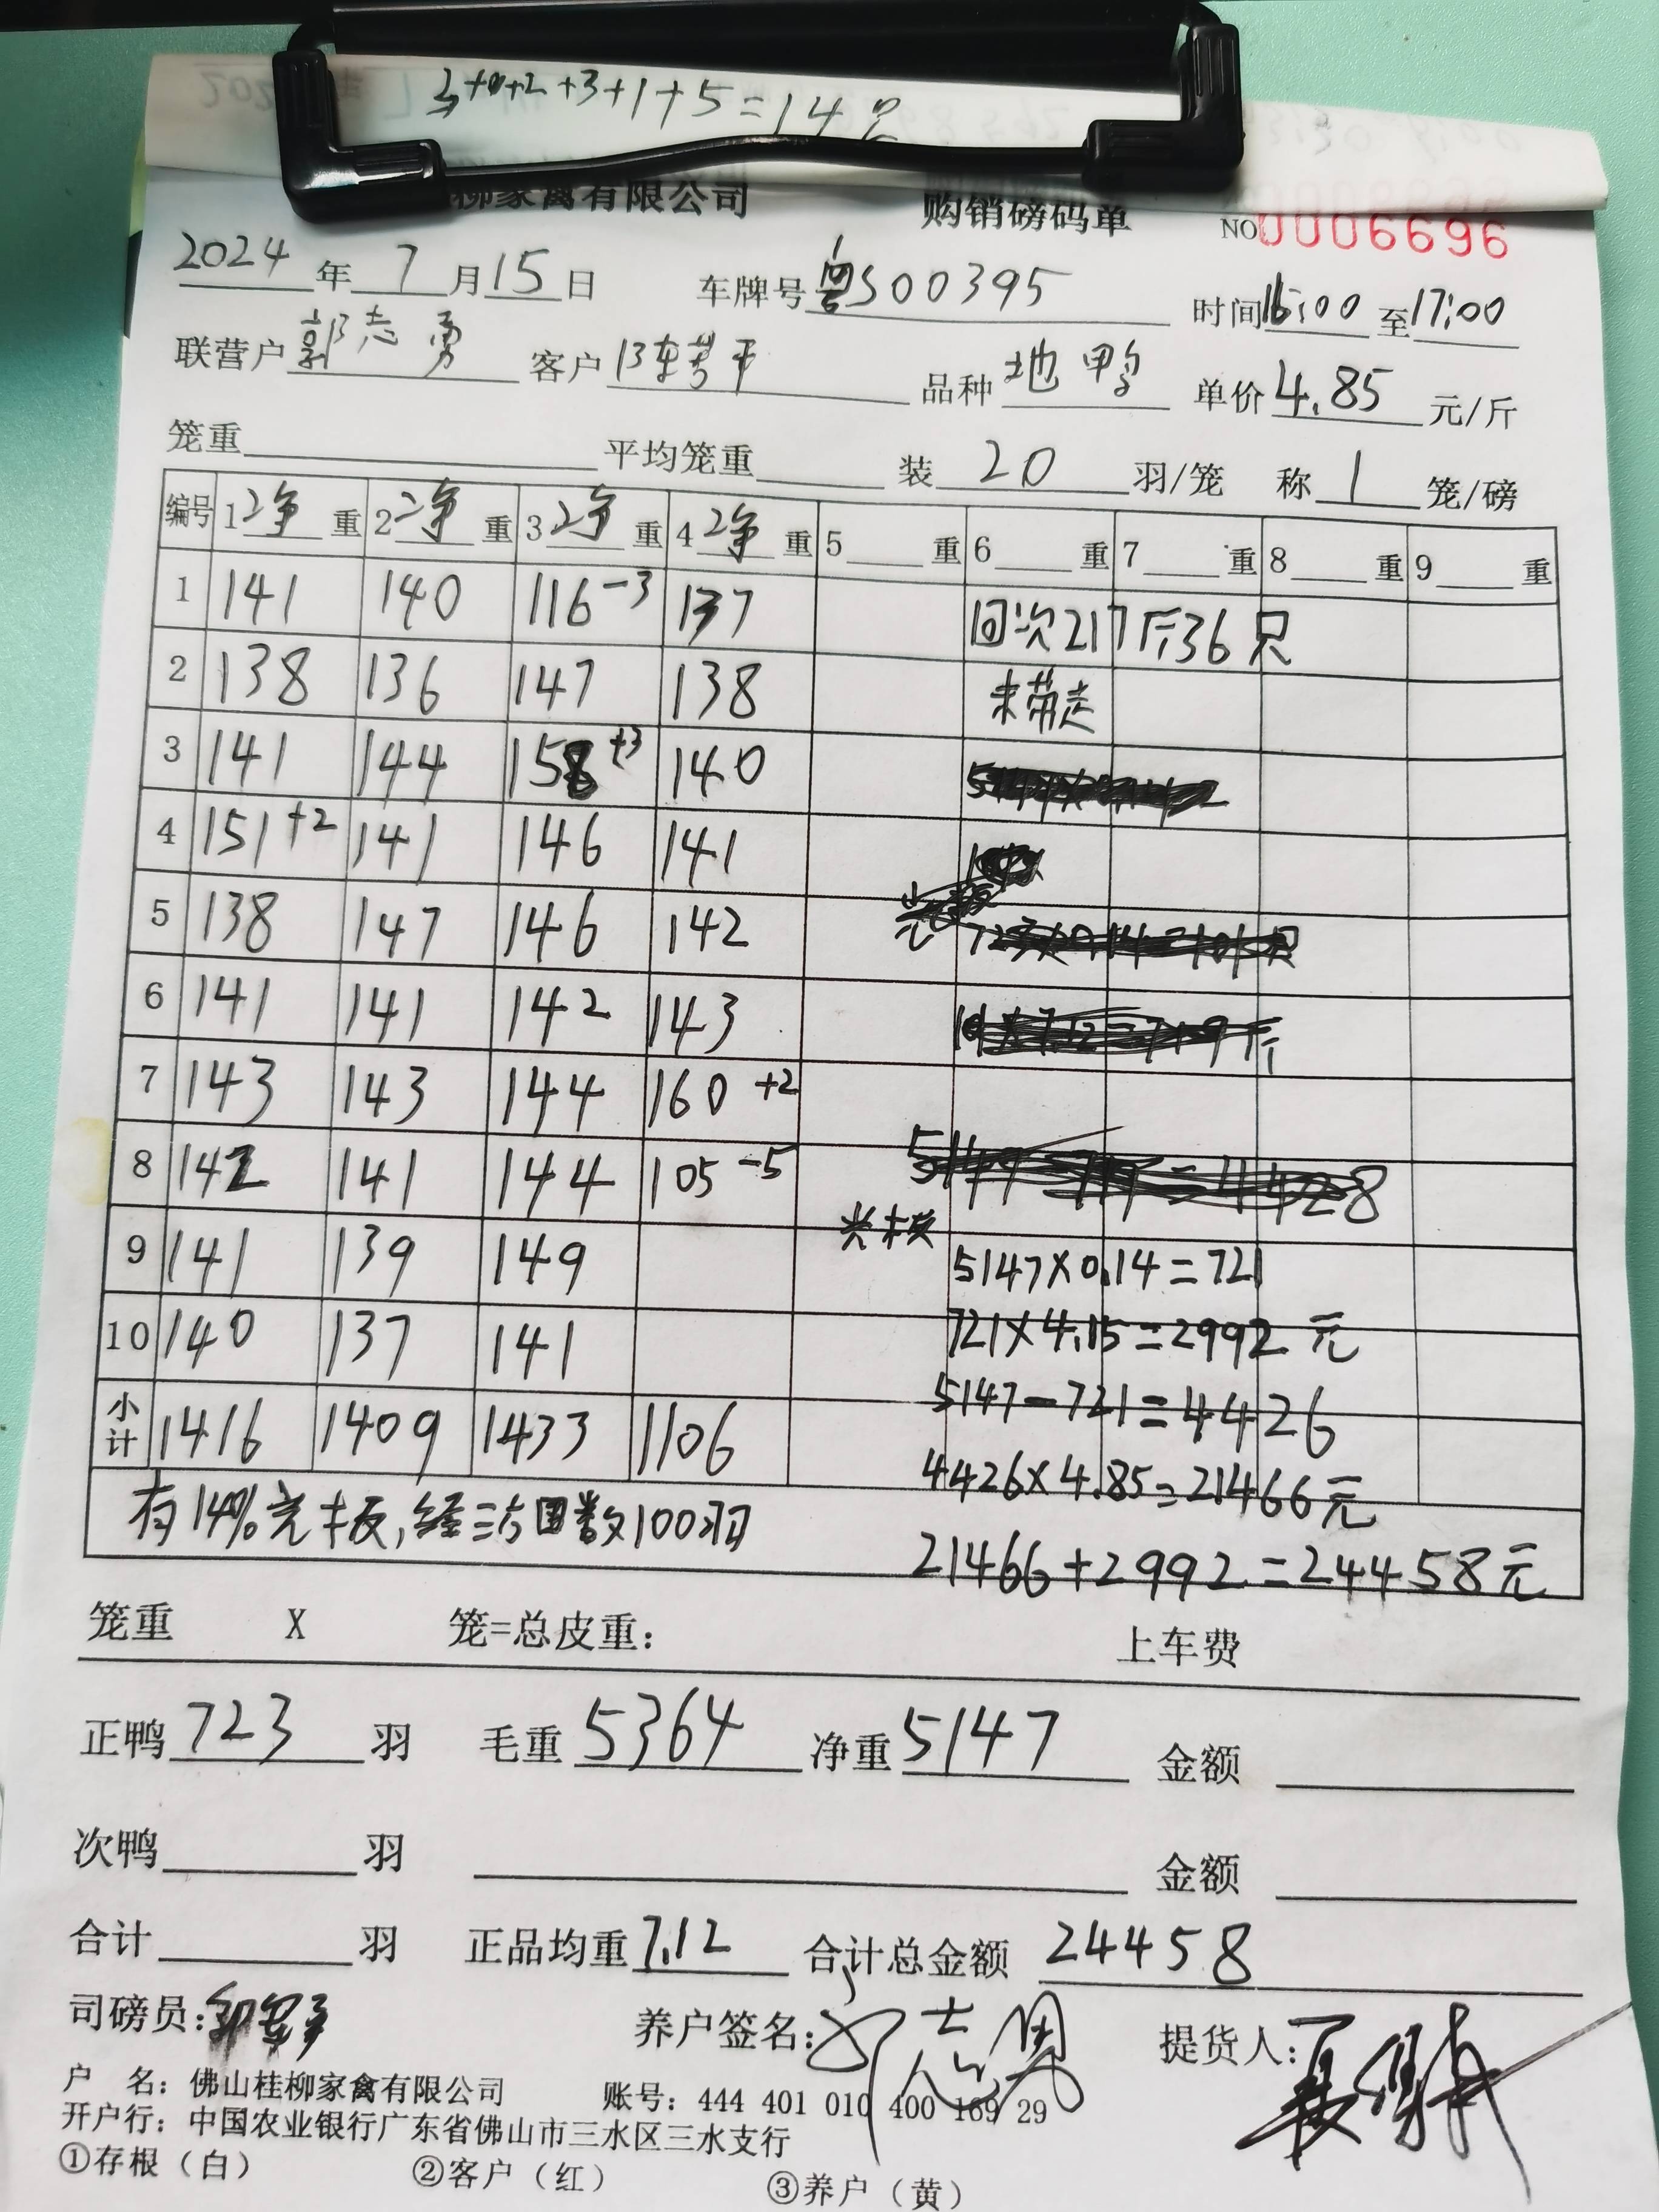 +2+3+1+5=14只
柳家禽有限公司 购销磅码单 NO 0006696
2024年7月15日 车牌号粤S00395 时间16:00至17:00
联营户郭志勇 客户 品种 地鸭 单价4.85元/斤
笼重 平均笼重 装20羽/笼 称1笼/磅
编号 1净重 2净重 3净重 4净重 5重 6重 7重 8重 9重
1 141 140 116-3 137 回次217斤36只
2 138 136 147 138 未带走
3 141 144 158+3 140
4 151+2 141 146 141
5 138 147 146 142
6 141 141 142 143
7 143 143 144 160+2
8 142 141 144 105-5
9 141 139 149 光板 5147×0.14=721
10 140 137 141 721×4.15=2992元
5147-721=4426
小计 1416 1409 1433 1106
4426×4.85=21466元
有14%光板,经 数100羽
21466+2992=24458元
笼重 X 笼=总皮重: 上车费
正鸭723羽 毛重5364 净重5147 金额
次鸭 羽 金额
合计 羽 正品均重7.12 合计总金额 24458
司磅员: 养户签名:郭志勇 提货人:
户 名: 佛山桂柳家禽有限公司 账号: 444 401 010 400 169 29
开户行: 中国农业银行广东省佛山市三水区三水支行
①存根(白) ②客户(红) ③养户(黄)